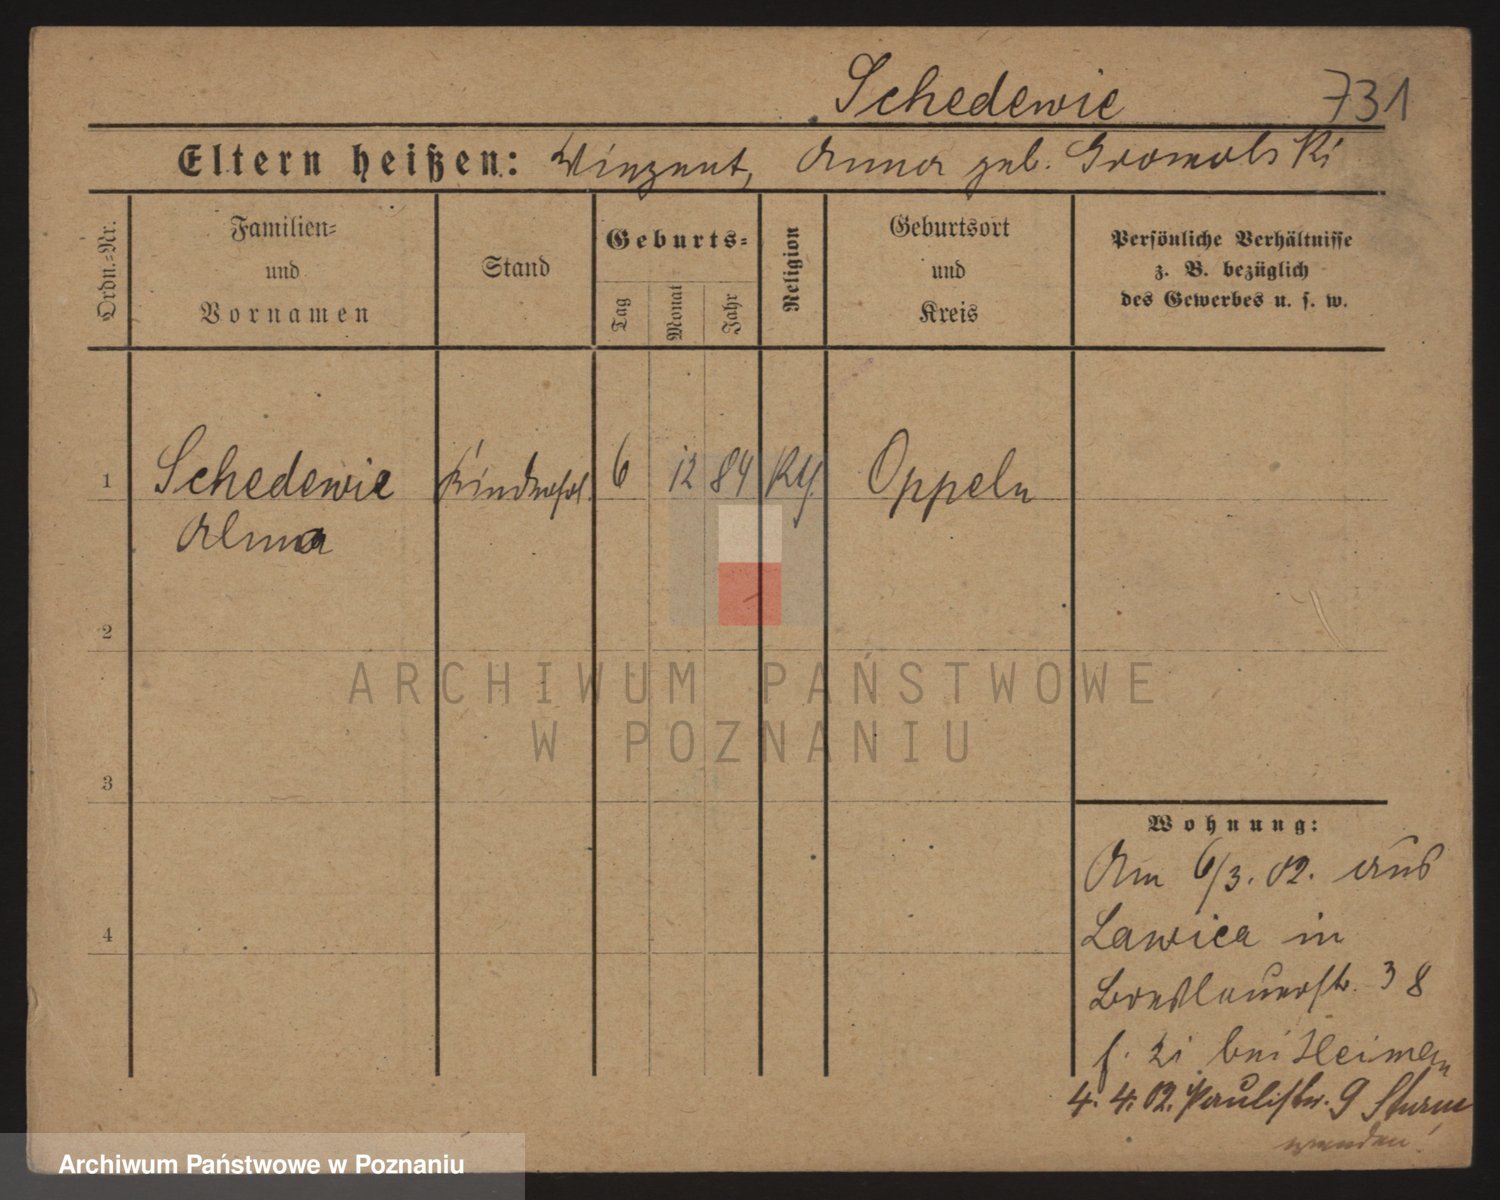 Schedewie 731
Eltern heißen: Vinzent, Anna geb. Gromolski
Ordn.-Nr.
Familien-
und
Vornamen
Stand
Geburts-
Tag
Monat
Jahr
Religion
Geburtsort
und
Kreis
Persönliche Verhältnisse
z. B. bezüglich
des Gewerbes u. s. w.
1 Schedewie 6 12 84 Oppeln
Alma
2
3
4
Wohnung:
Am 6/3. 02. aus
Lawica in
Breslauerstr. 38
bei Heimann
4. 4. 02. Paulistr. 9 Sturm
wenden!
ARCHIWUM PAŃSTWOWE
W POZNANIU
Archiwum Państwowe w Poznaniu